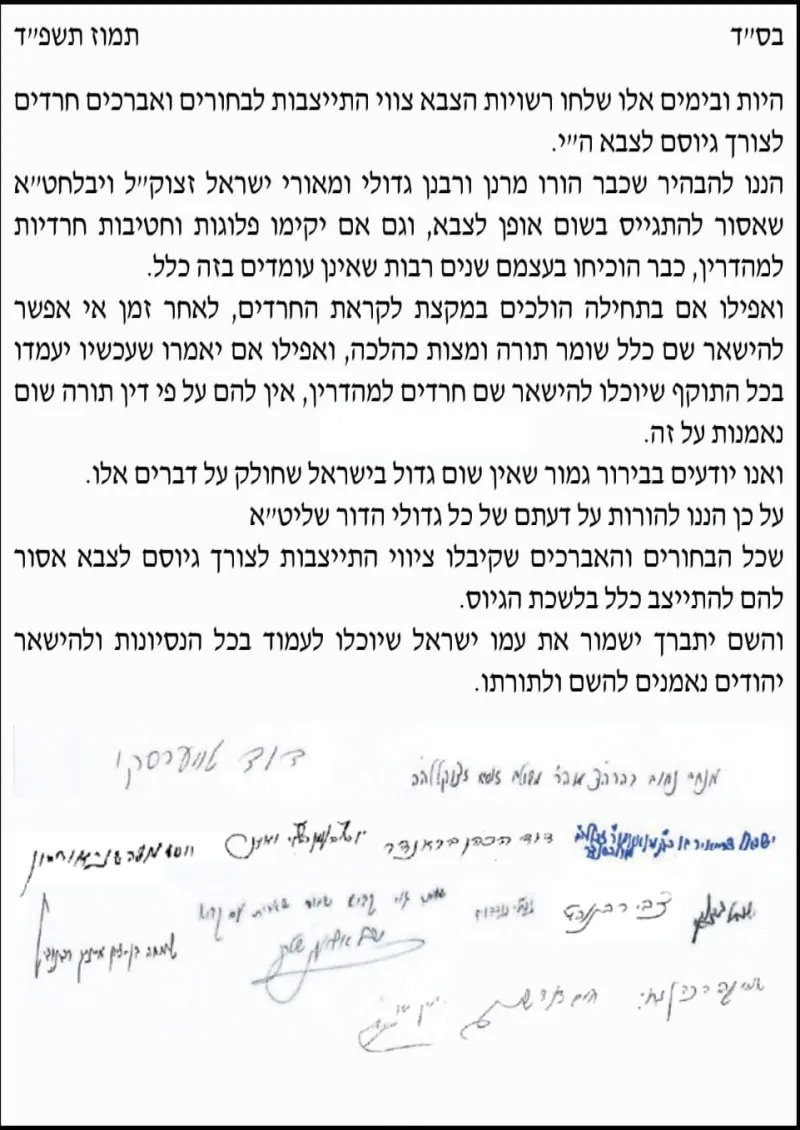 בס״ד תמוז תשפ״ד
היות ובימים אלו שלחו רשויות הצבא צווי התייצבות לבחורים ואברכים חרדים
לצורך גיוסם לצבא ה״י.
הננו להבהיר שכבר הורו מרנן ורבנן גדולי ומאורי ישראל זצוק״ל ויבלחט״א
שאסור להתגייס בשום אופן לצבא, וגם אם יקימו פלוגות וחטיבות חרדיות
למהדרין, כבר הוכיחו בעצמם שנים רבות שאינן עומדים בזה כלל.
ואפילו אם בתחילה הולכים במקצת לקראת החרדים, לאחר זמן אי אפשר
להישאר שם כלל שומר תורה ומצות כהלכה, ואפילו אם יאמרו שעכשיו יעמדו
בכל התוקף שיוכלו להישאר שם חרדים למהדרין, אין להם על פי דין תורה שום
נאמנות על זה.
ואנו יודעים בבירור גמור שאין שום גדול בישראל שחולק על דברים אלו.
על כן הננו להורות על דעתם של כל גדולי הדור שליט״א
שכל הבחורים והאברכים שקיבלו ציווי התייצבות לצורך גיוסם לצבא אסור
להם להתייצב כלל בלשכת הגיוס.
והשם יתברך ישמור את עמו ישראל שיוכלו לעמוד בכל הנסיונות ולהישאר
יהודים נאמנים להשם ולתורתו.
דוד טווערסקי
מנחם נחום
דוד הכהן בראנדער
צבי רבינוביץ